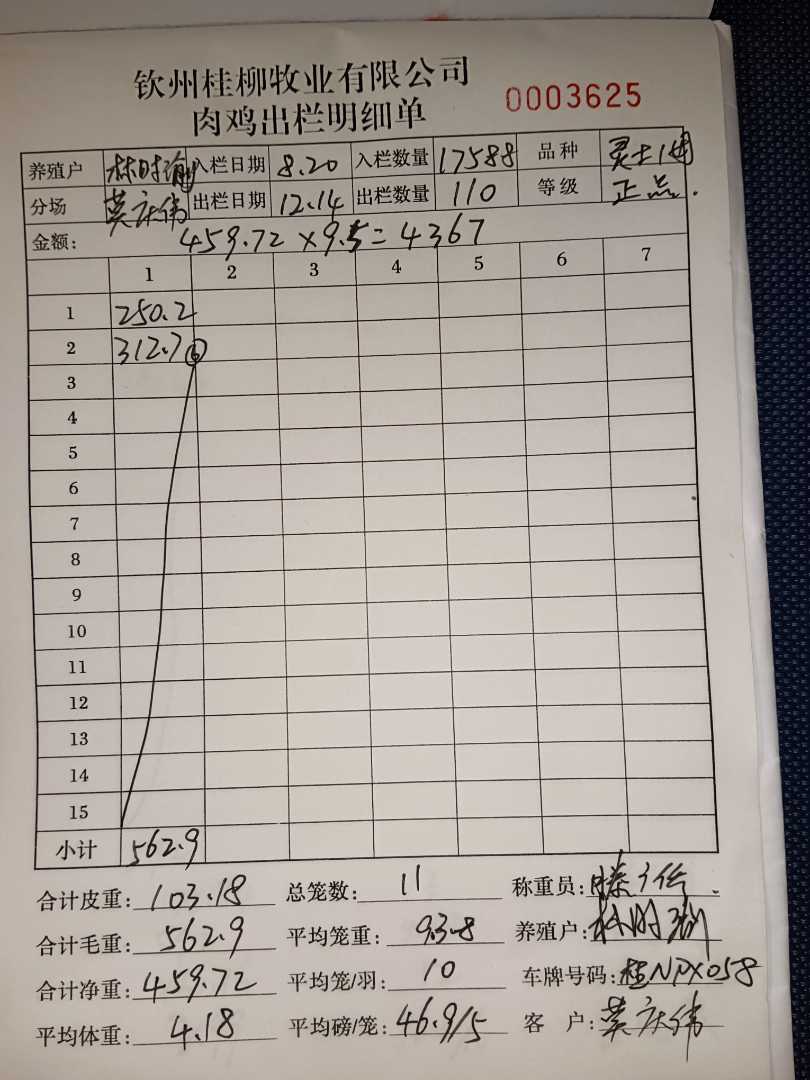 钦州桂柳牧业有限公司
肉鸡出栏明细单 0003625
养殖户 林时 入栏日期 8.20 入栏数量 17588 品种 灵土1
分场 莫庆伟 出栏日期 12.14 出栏数量 110 等级 正品.
金额: 459.72×9.5=4367
1 2 3 4 5 6 7
1 250.2
2 312.7 ⑥
3
4
5
6
7
8
9
10
11
12
13
14
15
小计 562.9
合计皮重: 103.18 总笼数: 11 称重员: 滕
合计毛重: 562.9 平均笼重: 9.3.8 养殖户: 林时
合计净重: 459.72 平均笼/羽: 10 车牌号码: 桂NPX058
平均体重: 4.18 平均磅/笼: 46.9/5 客 户: 莫庆伟